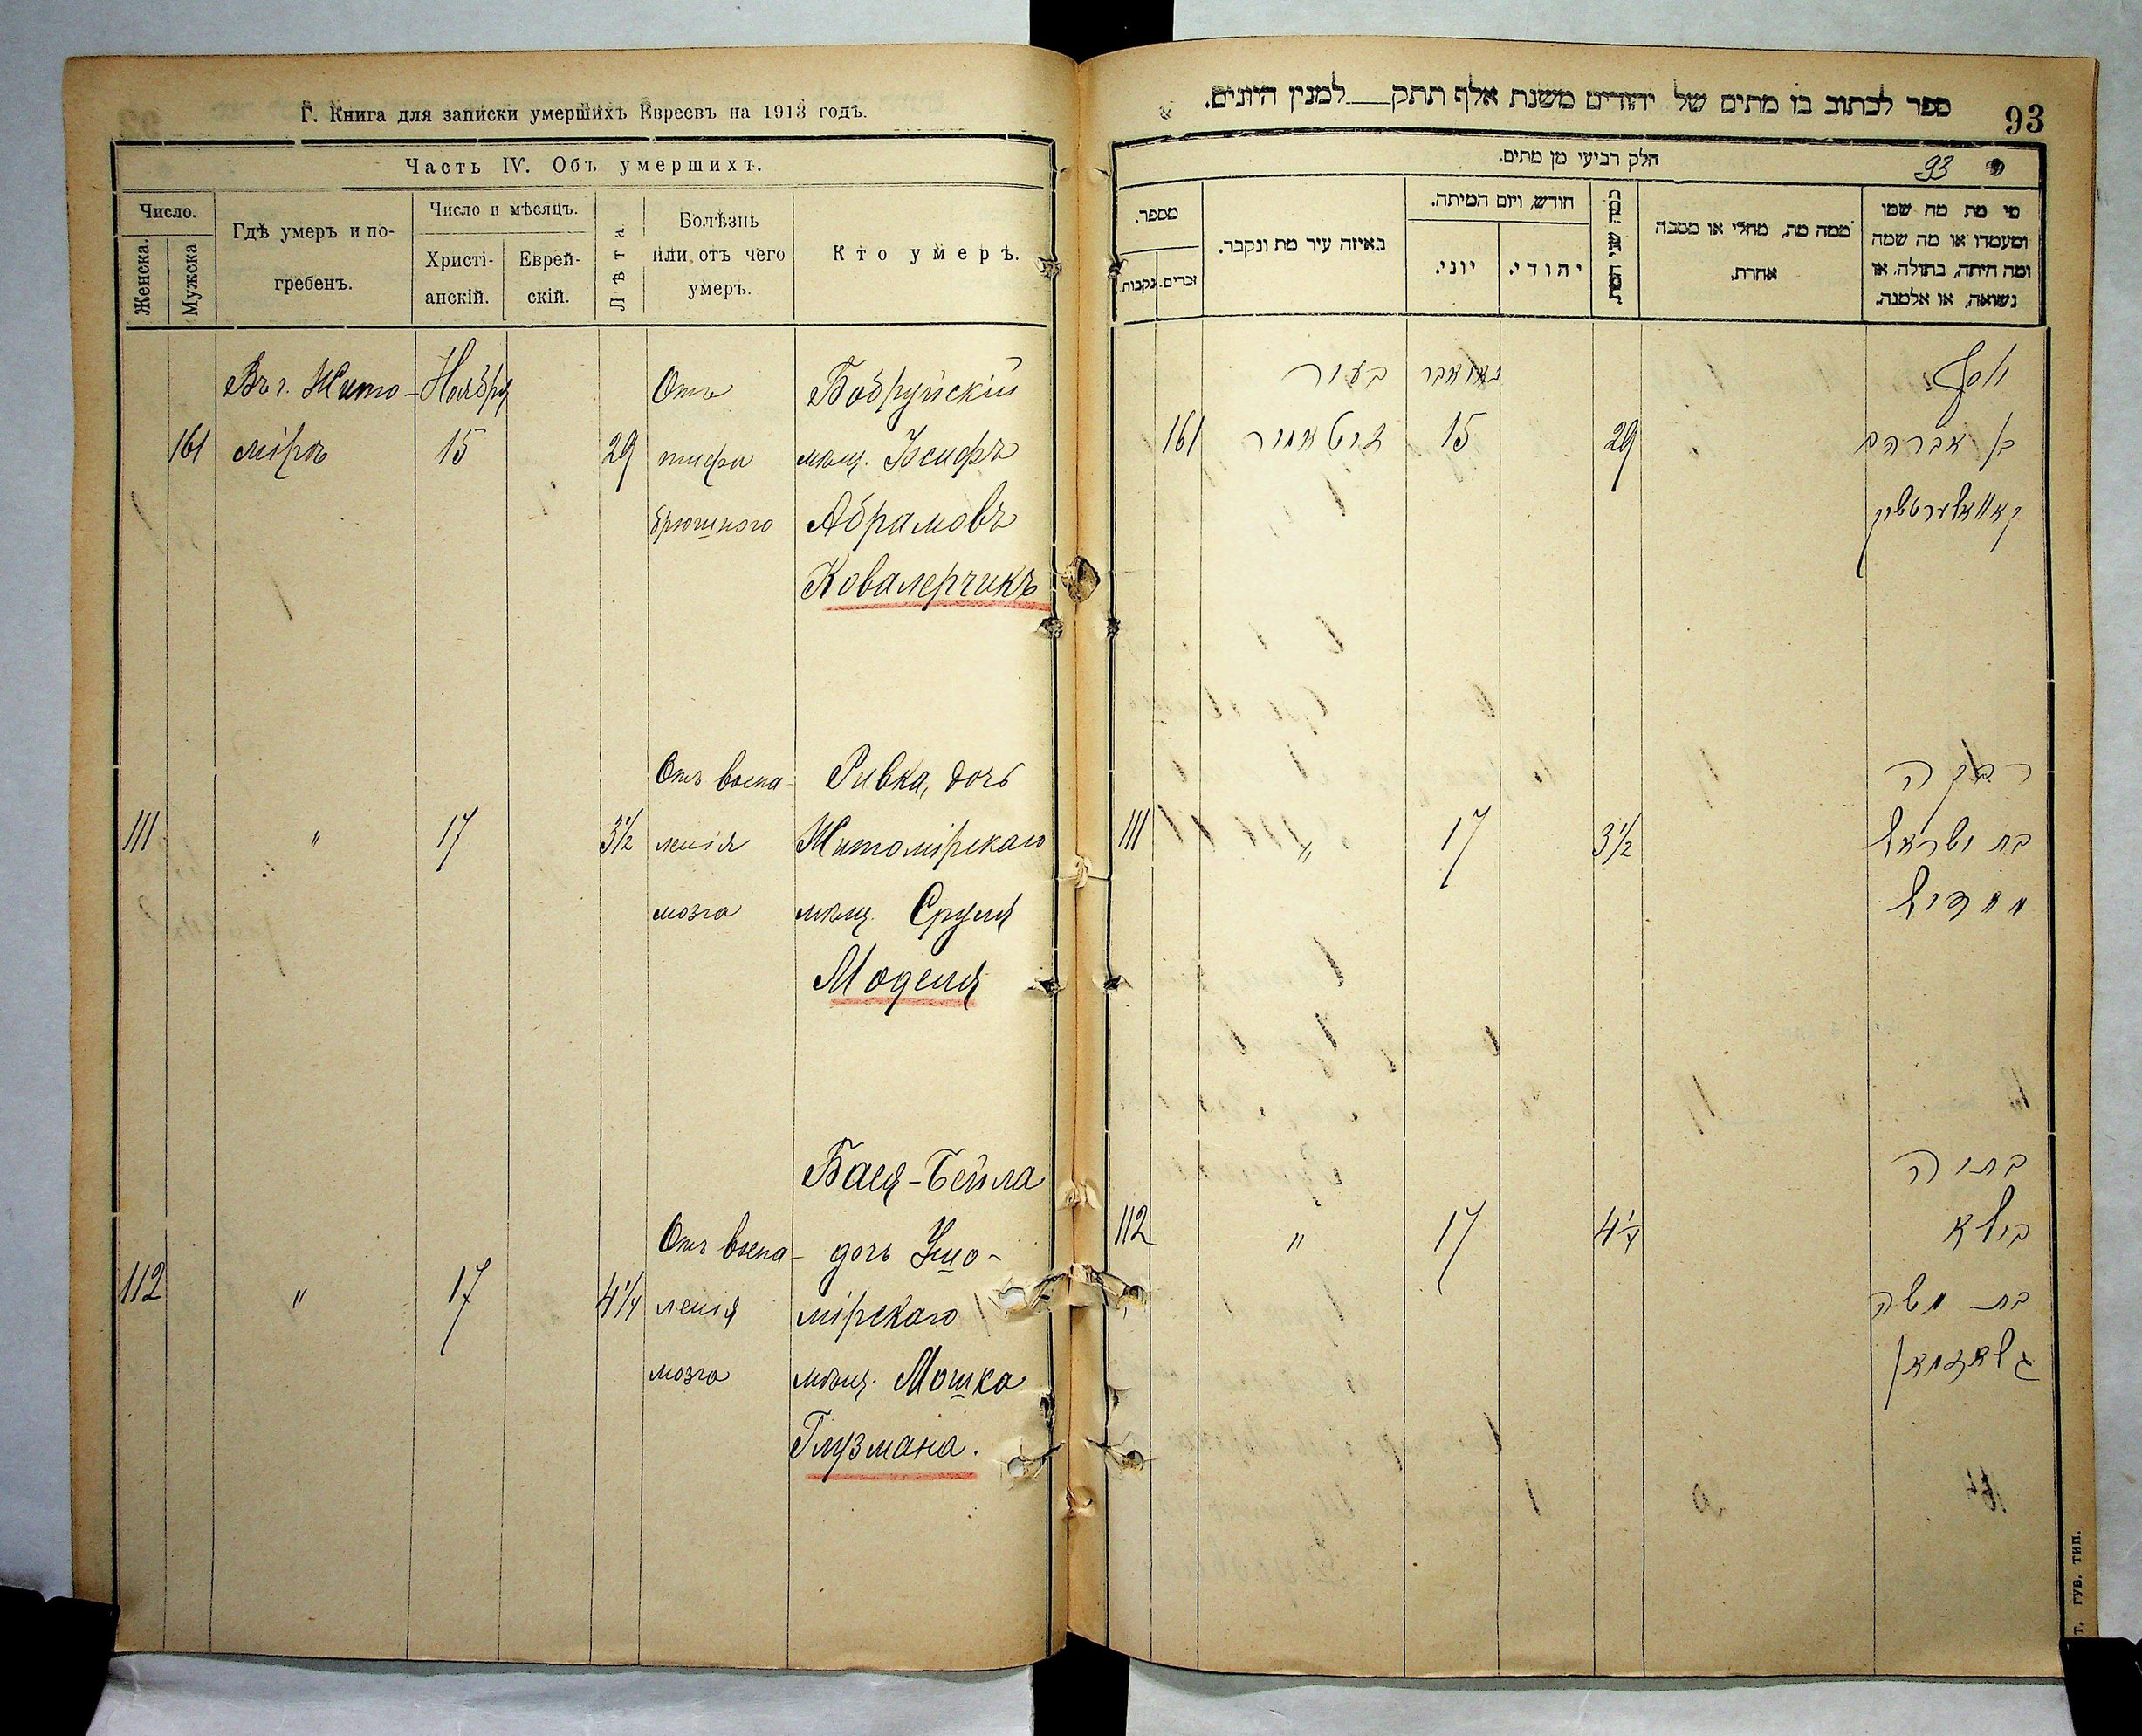 Г. Книга для записки умершихъ Евреевъ на 1913 годъ.
Часть IV. Объ умершихъ.
Число.
Женска.
Мужска
Гдѣ умеръ и по-
гребенъ.
Число и мѣсяцъ.
Христі-
анскій.
Еврей-
скій.
Лѣта
Болѣзнь
или отъ чего
умеръ.
Кто умеръ.
Въ г. Жито- Ноября Отъ Бобруйскій
161 мірѣ 15 29 тифа мѣщ. Іосифъ
брюшного Абрамовъ
Ковалерчикъ
Отъ воспа- Ривка, дочь
111 " 17 3½ ленія Житомірскаго
мозга мѣщ. Сруля
Моделя
Бася-Бейла
Отъ воспа- дочь Ушо-
112 " 17 4¼ ленія мірскаго
мозга мѣщ. Мошка
Глузмана.
ספר לכתוב בו מתים של יהודים משנת אלף תתק למנין היונים.
93
חלק רביעי מן מתים.
93
מספר.
נקבות
זכרים.
באיזה עיר מת ונקבר.
חודש, ויום המיתה.
יוני.
יהודי.
כמה שני המת.
ממה מת, מחלי או מסבה
אחרת.
מי מת מה שמו
ומעמדו או מה שמה
ומה היתה, בתולה, או
נשואה, או אלמנה.
יוסף
בעיר
161 זיטאמיר 15 29 בן אברהם
קאוואלערטשיק
רבקה
111 " 17 3½ בת ישראל
מאדיל
בתיה
112 " 17 4¼ ביילא
בת משה
גלוזמאן
гув. тип.